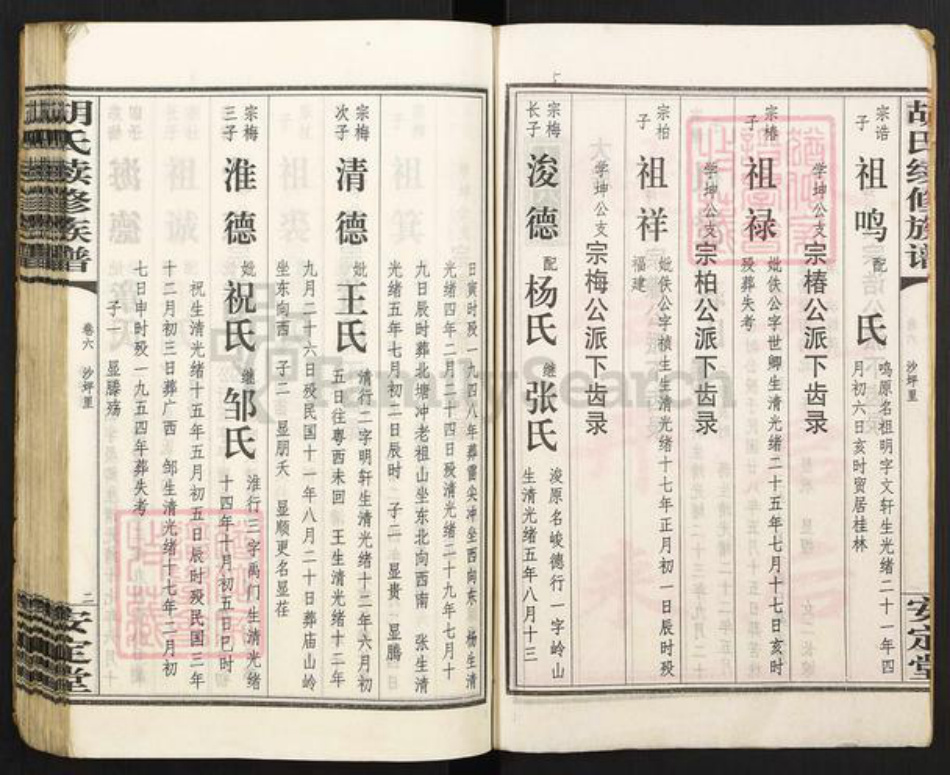 胡氏续修族谱
沙坪里
安定堂
宗浩
子
祖鸣
配
氏
鸣原名祖明字文轩生光绪二十一年四
月初六日亥时贸居桂林
学坤公支
宗椿公派下齿录
宗椿
子
祖禄
妣佚公字世卿生清光绪二十五年七月十七日亥时
殁葬失考
学坤公支
宗柏公派下齿录
宗柏
子
祖祥
妣佚公字桢生生清光绪十七年正月初一日辰时殁
福建
学坤公支
宗梅公派下齿录
宗梅
长子
浚德
配
杨氏
继
张氏
浚原名峻德行一字岭山
生清光绪五年八月十三
日寅时殁一九四八年葬雷尖冲坐西向东 杨生清
光绪四年二月二十四日殁清光绪二十九年七月十
九日辰时葬北塘冲老祖山坐东北向西南 张生清
光绪五年七月初二日辰时 子二 显贵 显腾
宗梅
次子
清德
妣
王氏
清行二字明轩生清光绪十二年六月初
五日往粤西未回 王生清光绪十二年
九月二十六日殁民国十一年八月二十日葬庙山岭
坐东向西 子二 显朋夭 显顺更名显荏
宗梅
三子
淮德
妣
祝氏
继
邹氏
淮行三字禹门生清光绪
十四年十月初五日巳时
祝生清光绪十五年五月初五日辰时殁民国三年
十二月初三日葬广西 邹生清光绪十七年二月初
七日申时殁一九五四年葬失考
子一 显滕殇
胡氏续修族谱
卷六 沙坪里
二
安定堂
FamilySearch